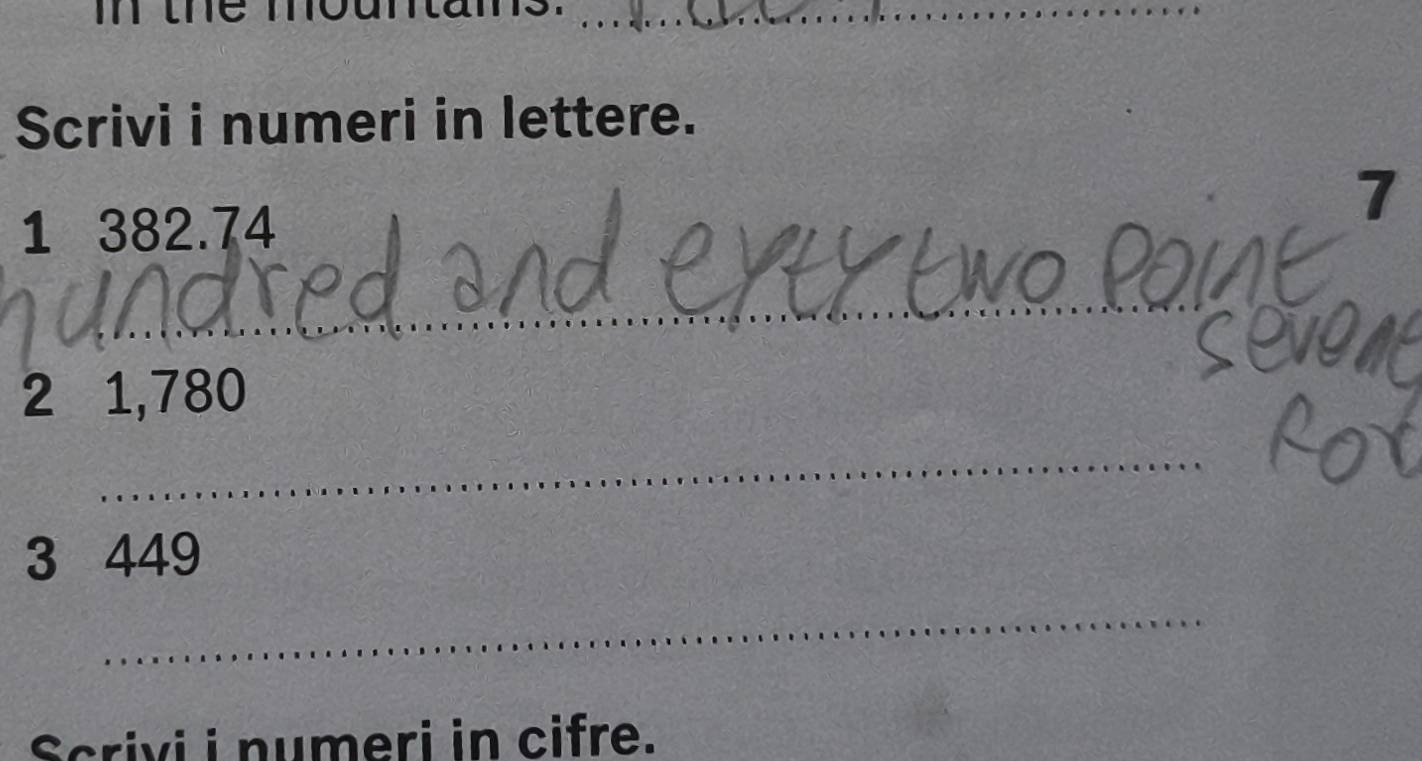 in the mountains.
Scrivi i numeri in lettere.
7
1 382.74
hundred and eyty two point
seven
for
2 1,780
3 449
Scrivi i numeri in cifre.